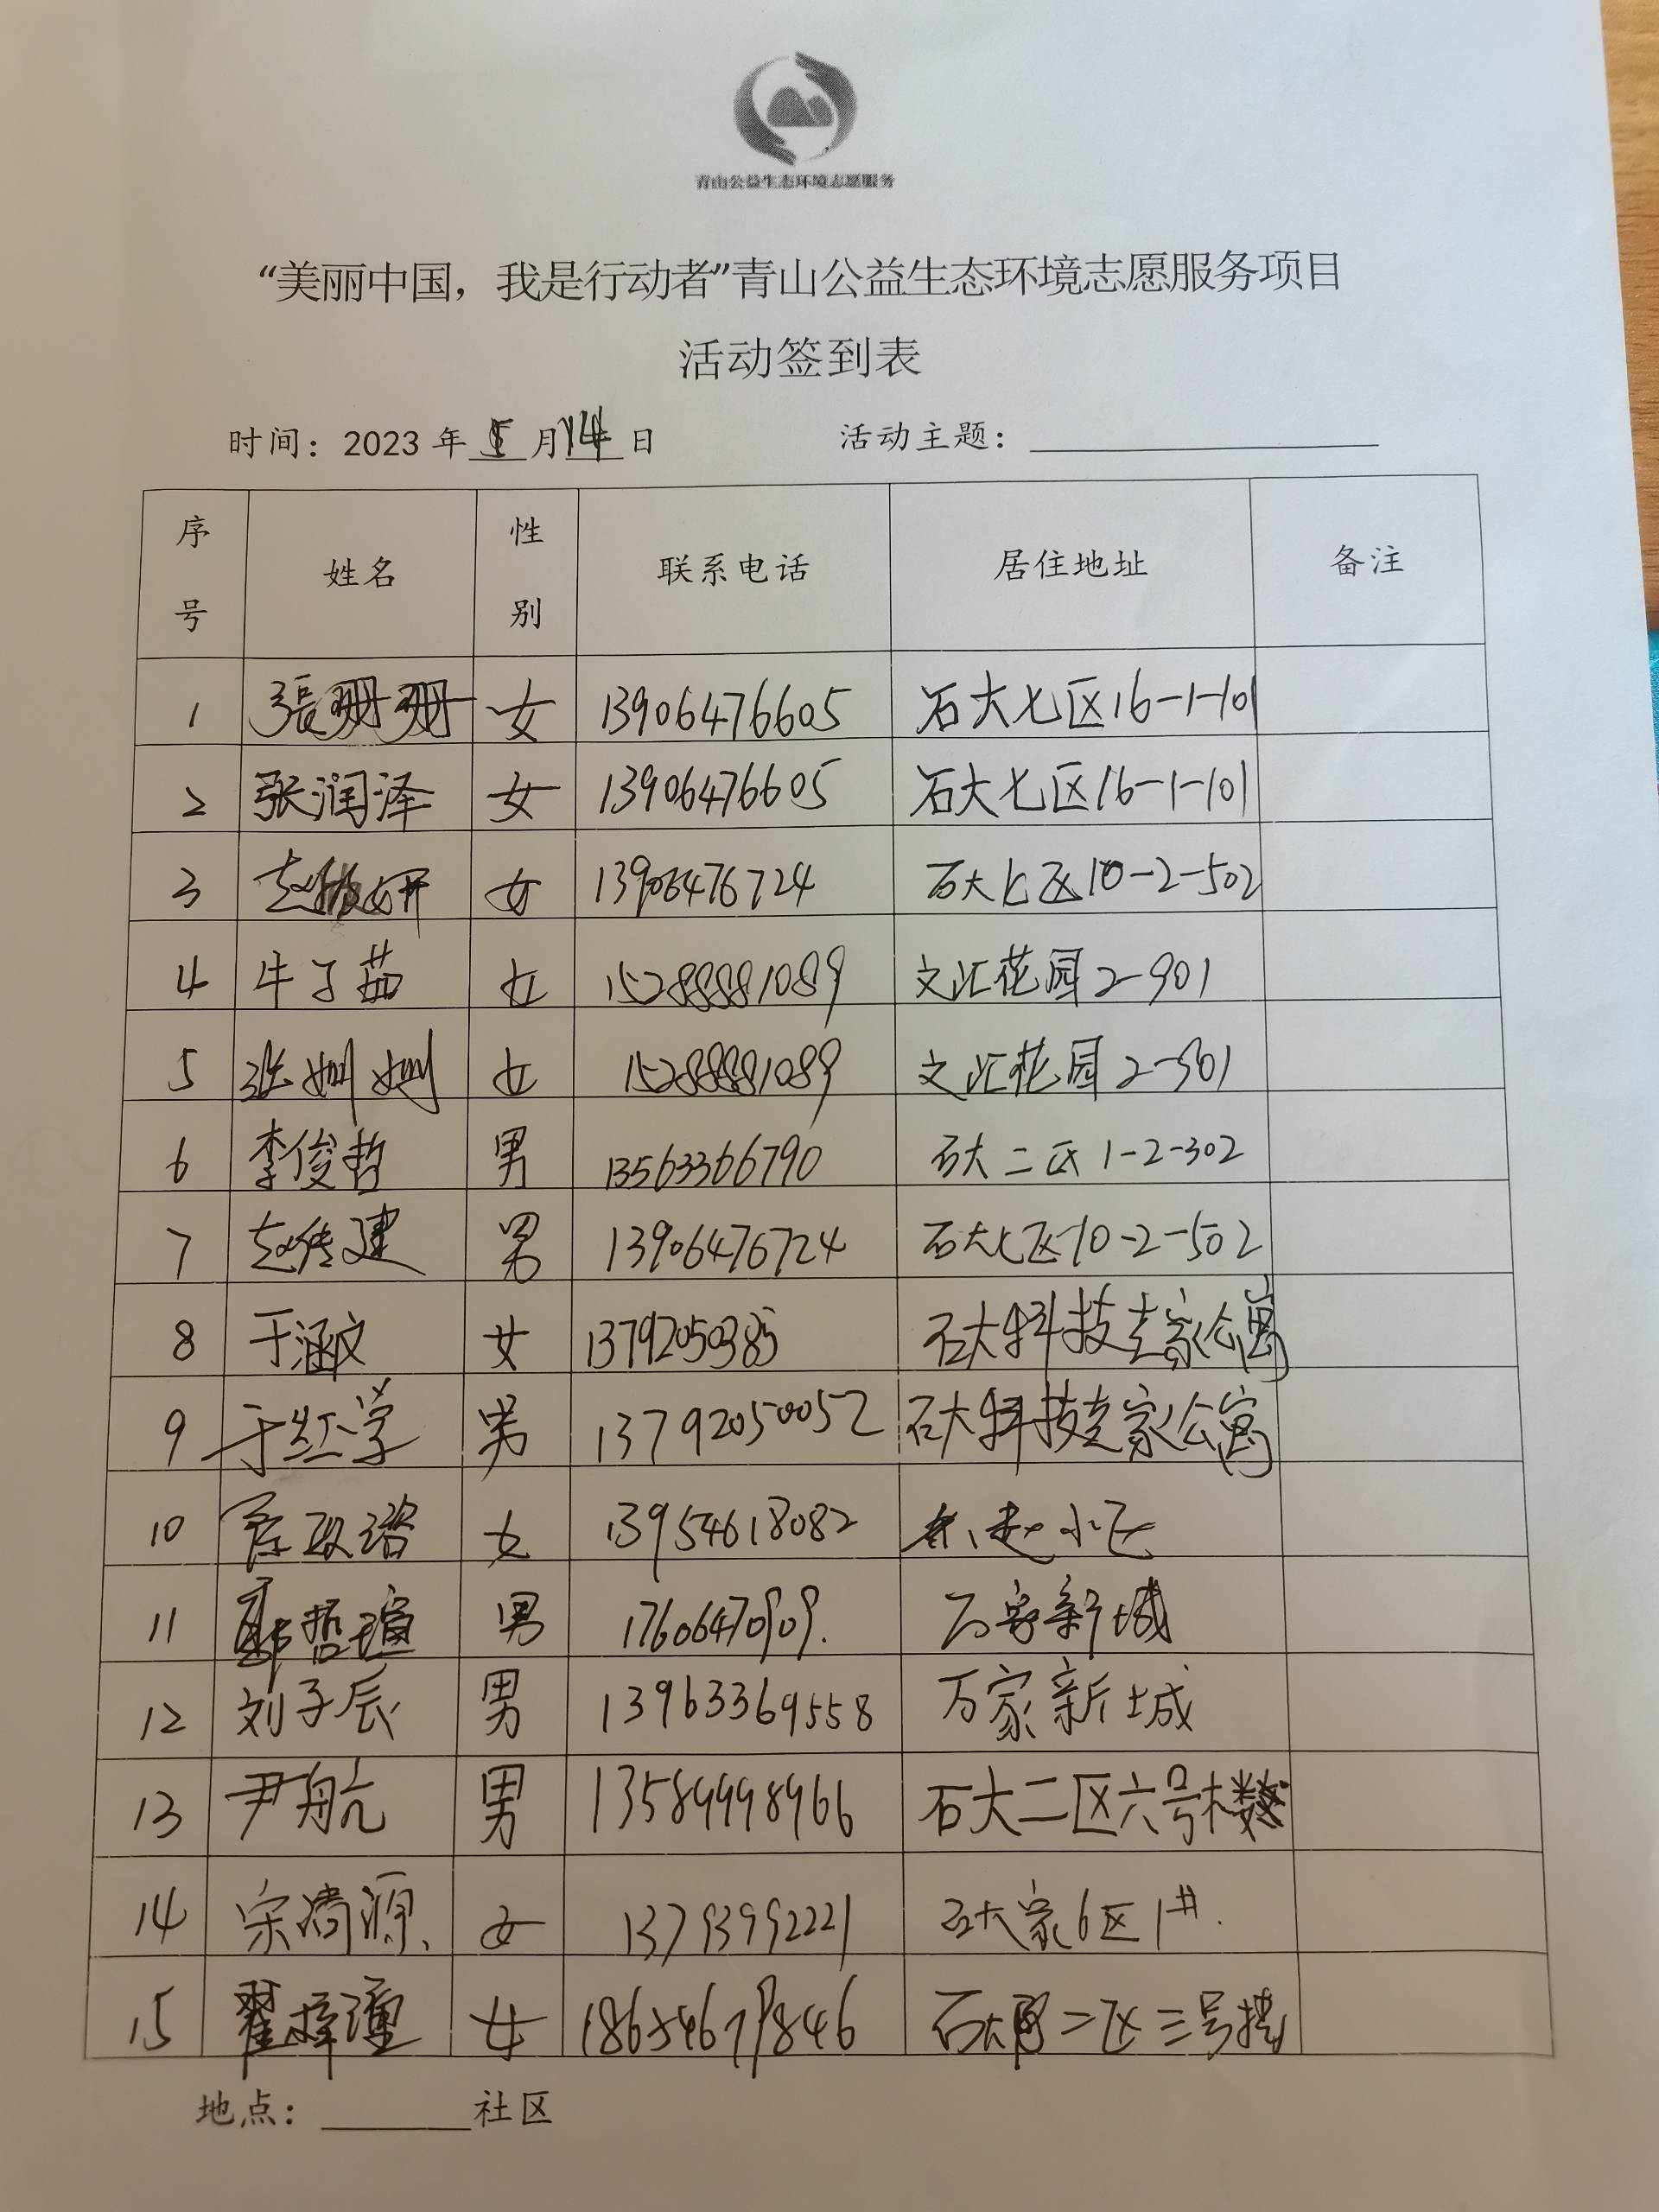 青山公益生态环境志愿服务
“美丽中国，我是行动者”青山公益生态环境志愿服务项目
活动签到表
时间：2023年5月14日 活动主题：
序号 姓名 性别 联系电话 居住地址 备注
1 張珊珊 女 13906476605 石大七区16-1-101
2 张润泽 女 13906476605 石大七区16-1-101
3 赵妍 女 13906476724 石大七区10-2-502
4 牛子茹 女 15288881089 文汇花园2-901
5 张姗姗 女 15288881089 文汇花园2-901
6 李俊哲 男 13563366790 石大二区1-2-302
7 赵传建 男 13906476724 石大七区10-2-502
8 于涵文 女 13792050385 石大科技专家公寓
9 于红学 男 13792050052 石大科技专家公寓
10 女 13954618082 赵小区
11 哲瑄 男 17606470909. 万家新城
12 刘子辰 男 13963369558 万家新城
13 尹航 男 13589998966 石大二区六号楼
14 宋清源、 女 13793992221 石大家6区1#.
15 翟梓潼 女 18654679846 石大二区三号楼
地点： 社区